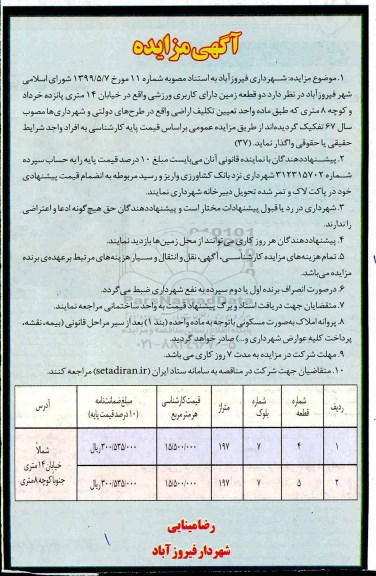 آگهی مزایده
۱. موضوع مزایده: شهرداری فیروزآباد به استناد مصوبه شماره ۱۱ مورخ ۱۳۹۹/۵/۷ شورای اسلامی
شهر فیروزآباد در نظر دارد دو قطعه زمین دارای کاربری ورزشی واقع در خیابان ۱۴ متری پانزده خرداد
و کوچه ۸ متری که طبق ماده واحد تعیین تکلیف اراضی واقع در طرح‌های دولتی و شهرداری‌ها مصوب
سال ۶۷ تفکیک گردیده‌اند از طریق مزایده عمومی براساس قیمت پایه کارشناسی به افراد واجد شرایط
حقیقی یا حقوقی واگذار نماید. (۳۷)
۲. پیشنهاددهندگان یا نماینده قانونی آنان می‌بایست مبلغ ۱۰ درصد قیمت پایه را به حساب سپرده
شماره ۳۱۲۳۱۵۷۰۲ شهرداری نزد بانک کشاورزی واریز و رسید مربوطه به انضمام قیمت پیشنهادی
خود در پاکت لاک و تمر شده تحویل دبیرخانه شهرداری نمایند.
۳. شهرداری در رد یا قبول پیشنهادات مختار است و پیشنهاددهندگان حق هیچ گونه ادعا و اعتراضی
را ندارند.
۴. پیشنهاددهندگان هر روز کاری می‌توانند از محل زمین‌ها بازدید نمایند.
۵. تمام هزینه‌های مزایده کارشناسی، آگهی، نقل و انتقال و سایر هزینه‌های مرتبط بر عهده‌ی برنده
مزایده می‌باشد.
۶. در صورت انصراف برنده اول یا دوم سپرده به نفع شهرداری ضبط می‌گردد.
۷. متقاضیان جهت دریافت اسناد و برگ پیشنهاد قیمت به واحد ساختمانی مراجعه نمایند.
۸. پروانه املاک به‌صورت مسکونی با توجه به ماده واحده (بند ۱) بعد از سیر مراحل قانونی (بیمه، نقشه،
پرداخت کلیه عوارض شهرداری و...) صادر خواهد گردید.
۹. مهلت شرکت در مزایده به مدت ۷ روز کاری می باشد.
۱۰. متقاضیان جهت شرکت در مناقصه به سامانه ستاد ایران (setadiran.ir) مراجعه کنند.
ردیف شماره قطعه شماره بلوک متراژ قیمت کارشناسی هر متر مربع مبلغ ضمانتنامه (۱۰ درصد قیمت پایه) آدرس
۱ ۴ ۷ ۱۹۷ ۱۵/۵۰۰/۰۰۰ ۳۰۰/۵۳۵/۰۰۰ ریال شمالاً خیابان ۱۴ متری جنوباً کوچه ۸ متری
۲ ۵ ۷ ۱۹۷ ۱۵/۵۰۰/۰۰۰ ۳۰۰/۵۳۵/۰۰۰ ریال
رضا مینایی
شهردار فیروزآباد